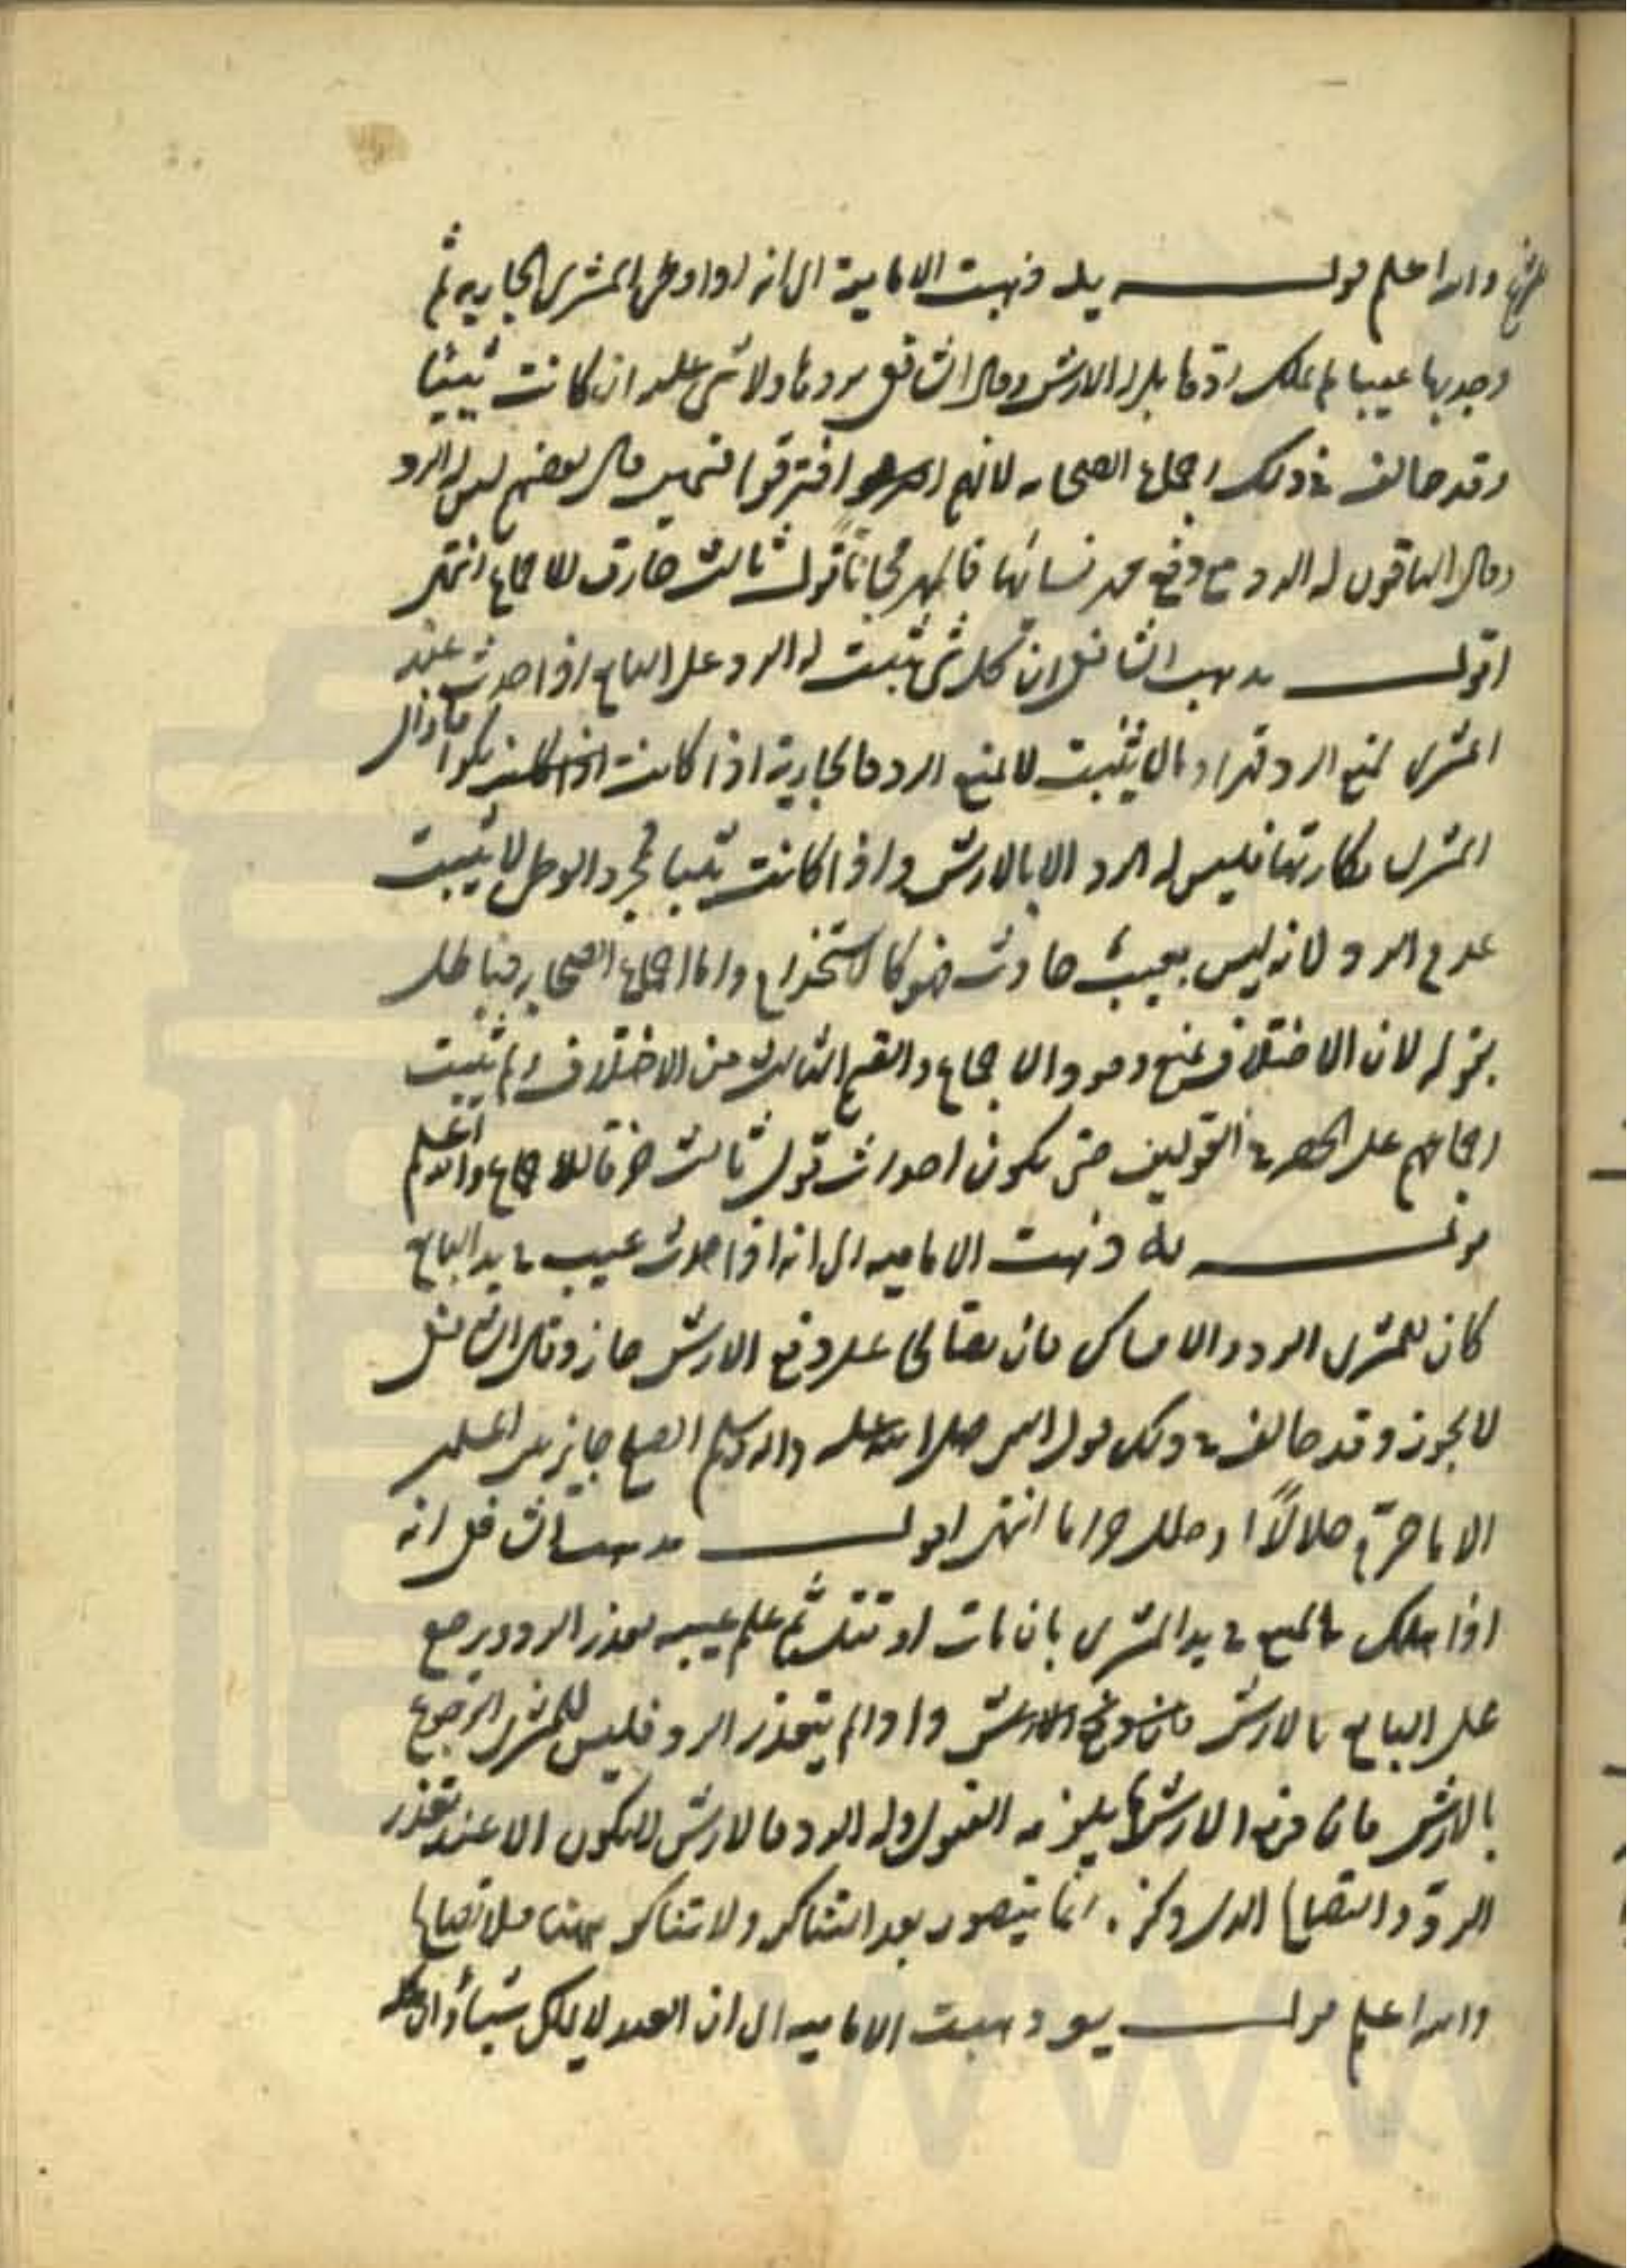 والله اعلم قولــه يله ذهبت الامامية الى انه اذا وطئ المشترى الجارية ثم
وجد بها عيبا لم يملك ردها بل له الارش وقال الشافعى يردها ولا شئ عليه ان كانت ثيبا
وقد خالف فى ذلك اجماع الصحابه لانهم افترقوا قسمين قال بعضهم ليس له الرد
وقال الباقون له الرد مع دفع مهر نسائها فالمهر مجانا قول ثالث خارق للاجماع انتهى
اقول مذهب الشافعى ان كل شئ يثبت له الرد على البايع اذا حدث عند
المشترى يمنع الرد قهرا وما لا يثبت لا يمنع الرد فالجارية اذا كانت بكرا فازال
المشترى بكارتها فليس له الرد الا بالارش واذا كانت ثيبا فمجرد الوطى لا يثبت
عدم الرد لانه ليس بعيب حادث فهو كالاستخدام واما اجماع الصحابه فباطل
لان الاختلاف يمنع وجود الاجماع والقسم الثالث من الاختلاف ولم يثبت
اجماعهم على الحصر فى القولين حتى يكون احداث قول ثالث خرقا للاجماع والله اعلم
قولــه يله ذهبت الاماميه الى انه اذا حدث عيب فى يد البايع
كان للمشترى الرد والامساك فان تصالحا على دفع الارش جاز وقال الشافعى
لا يجوز وقد خالف فى ذلك قول النبى صلى الله عليه واله وسلم الصلح جايز بين المسلمين
الا ما حرّم حلالًا او حلل حراما انتهى اقول مذهب الشافعى انه
اذا هلك المبيع فى يد المشترى بان مات او تلف ثم علم عيبه تعذر الرد ويرجع
على البايع بالارش واذا لم يتعذر الرد فليس للمشترى الرجوع
بالارش فان دفع الارش لم يلزمه القبول وله الرد فالارش لا يكون الا عند تعذر
الردّ والتصالح الذى ذكره انما يتصور بعد التناكر ولا تناكر ههنا فلا تصالح
والله اعلم قولــه يو ذهبت الاماميه الى ان العبد لا يملك شيئا